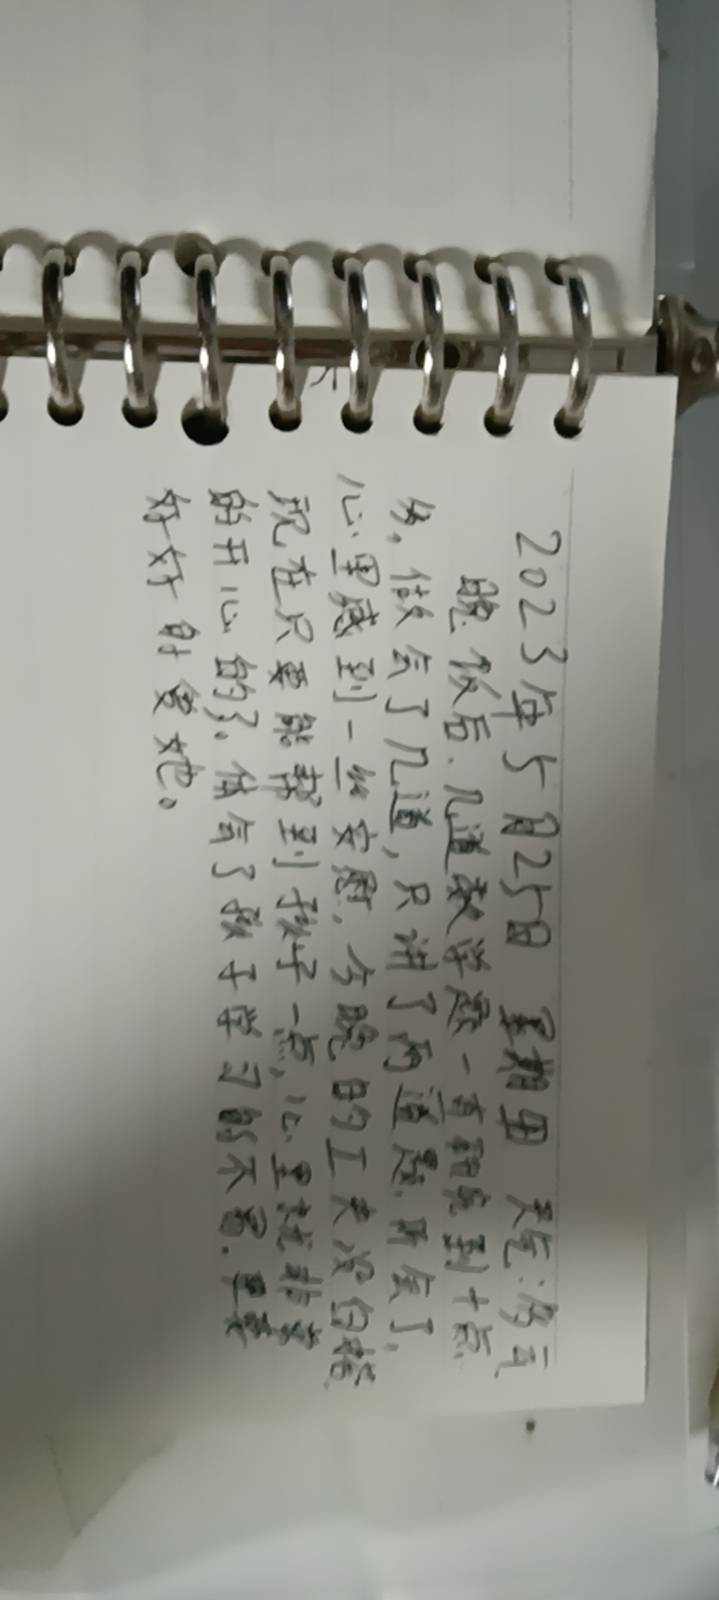 2023年5月25日 星期四 天气:多云
晚饭后,几道数学题一直研究到十点
多,做会了几道,只讲了两道题,听会了,
心里感到一丝安慰,今晚的工夫没白搭
现在只要能帮到孩子一点,心里就非常
的开心的了。体会了孩子学习的不易,更要
好好的爱她。